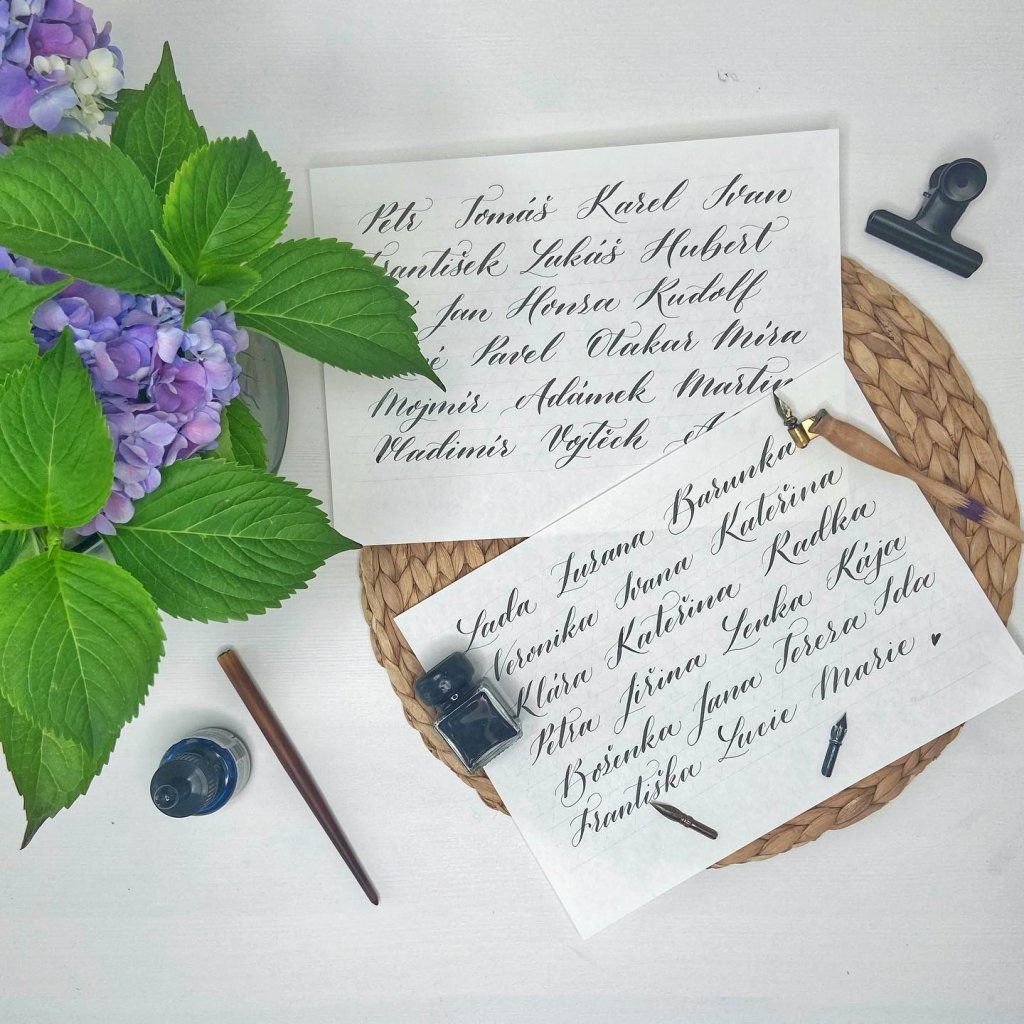 Petr Tomáš Karel Ivan
František Lukáš Hubert
Jan Honza Rudolf
Pavel Otakar Míra
Mojmír Adámek Martin
Vladimír Vojtěch
Lada Zuzana Barunka
Veronika Ivana Kateřina
Klára Kateřina Radka
Petra Jiřina Lenka Kája
Boženka Jana Tereza Ida
Františka Lucie Marie ♥